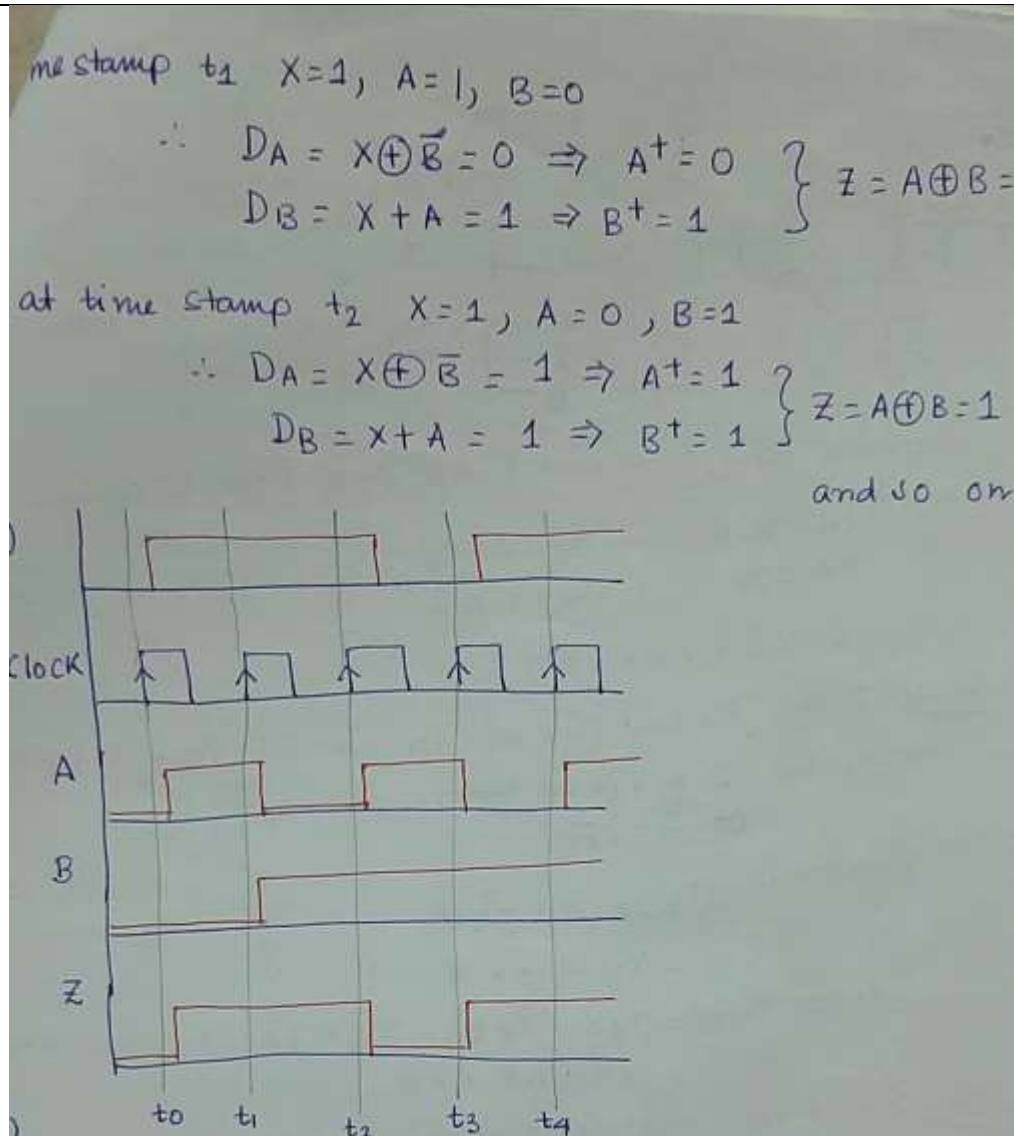 me stamp t1 X=1, A=1, B=0
∴ DA = X⊕B̅ = 0 ⇒ A+ = 0 } Z = A⊕B =
DB = X + A = 1 ⇒ B+ = 1
at time stamp t2 X=1, A=0, B=1
∴ DA = X⊕B̅ = 1 ⇒ A+ = 1 } Z = A⊕B = 1
DB = X + A = 1 ⇒ B+ = 1
and so on
)
Clock
A
B
Z
t0 t1 t2 t3 t4
)